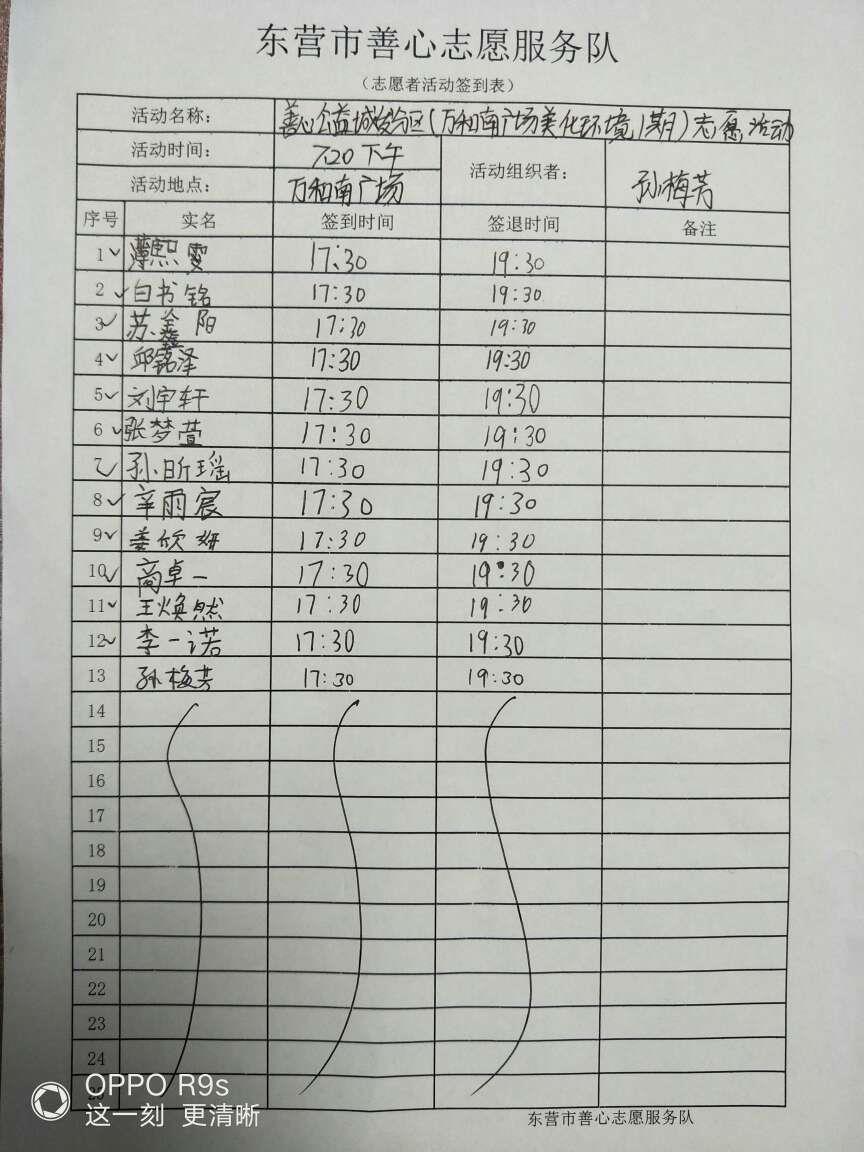 东营市善心志愿服务队
（志愿者活动签到表）
活动名称： 善心公益城发分区(万和南广场美化环境1期)志愿活动
活动时间： 7.20下午
活动地点： 万和南广场
活动组织者： 孙梅芳
序号 实名 签到时间 签退时间 备注
1 薄熙雯 17:30 19:30
2 白书铭 17:30 19:30
3 苏鑫阳 17:30 19:30
4 邱铭泽 17:30 19:30
5 刘宇轩 17:30 19:30
6 张梦萱 17:30 19:30
7 孙昕瑶 17:30 19:30
8 辛雨宸 17:30 19:30
9 姜欣妍 17:30 19:30
10 高卓一 17:30 19:30
11 王焕然 17:30 19:30
12 李一诺 17:30 19:30
13 孙梅芳 17:30 19:30
14
15
16
17
18
19
20
21
22
23
24
25
东营市善心志愿服务队
OPPO R9s
这一刻 更清晰